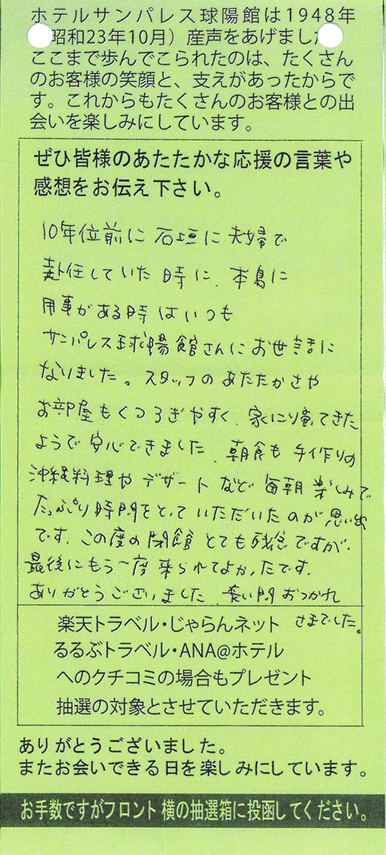 ホテルサンパレス球陽館は1948年
昭和23年10月）産声をあげました
ここまで歩んでこられたのは、たくさん
のお客様の笑顔と、支えがあったからで
す。これからもたくさんのお客様との出
会いを楽しみにしています。
ぜひ皆様のあたたかな応援の言葉や
感想をお伝え下さい。
10年位前に石垣に夫婦で
赴任していた時に、本島に
用事がある時はいつも
サンパレス球陽館さんにお世話に
なりました。スタッフのあたたかさや
お部屋もくつろぎやすく、家に帰ってきた
ようで安心できました。朝食も手作りの
沖縄料理やデザートなど毎朝楽しみで
たっぷり時間をとっていただいたのが思い出
です。この度の閉館とても残念ですが、
最後にもう一度来られてよかったです。
ありがとうございました。長い間おつかれ
さまでした。
楽天トラベル・じゃらんネット
るるぶトラベル・ANA@ホテル
へのクチコミの場合もプレゼント
抽選の対象とさせていただきます。
ありがとうございました。
またお会いできる日を楽しみにしています。
お手数ですがフロント横の抽選箱に投函してください。